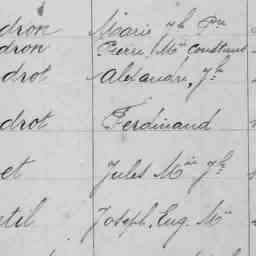 dron Marie
dron Pierre Mie Constant
drot Alexandre Jh
drot Ferdinand
et Jules Mie Jh
til Joseph, Eug. Mie